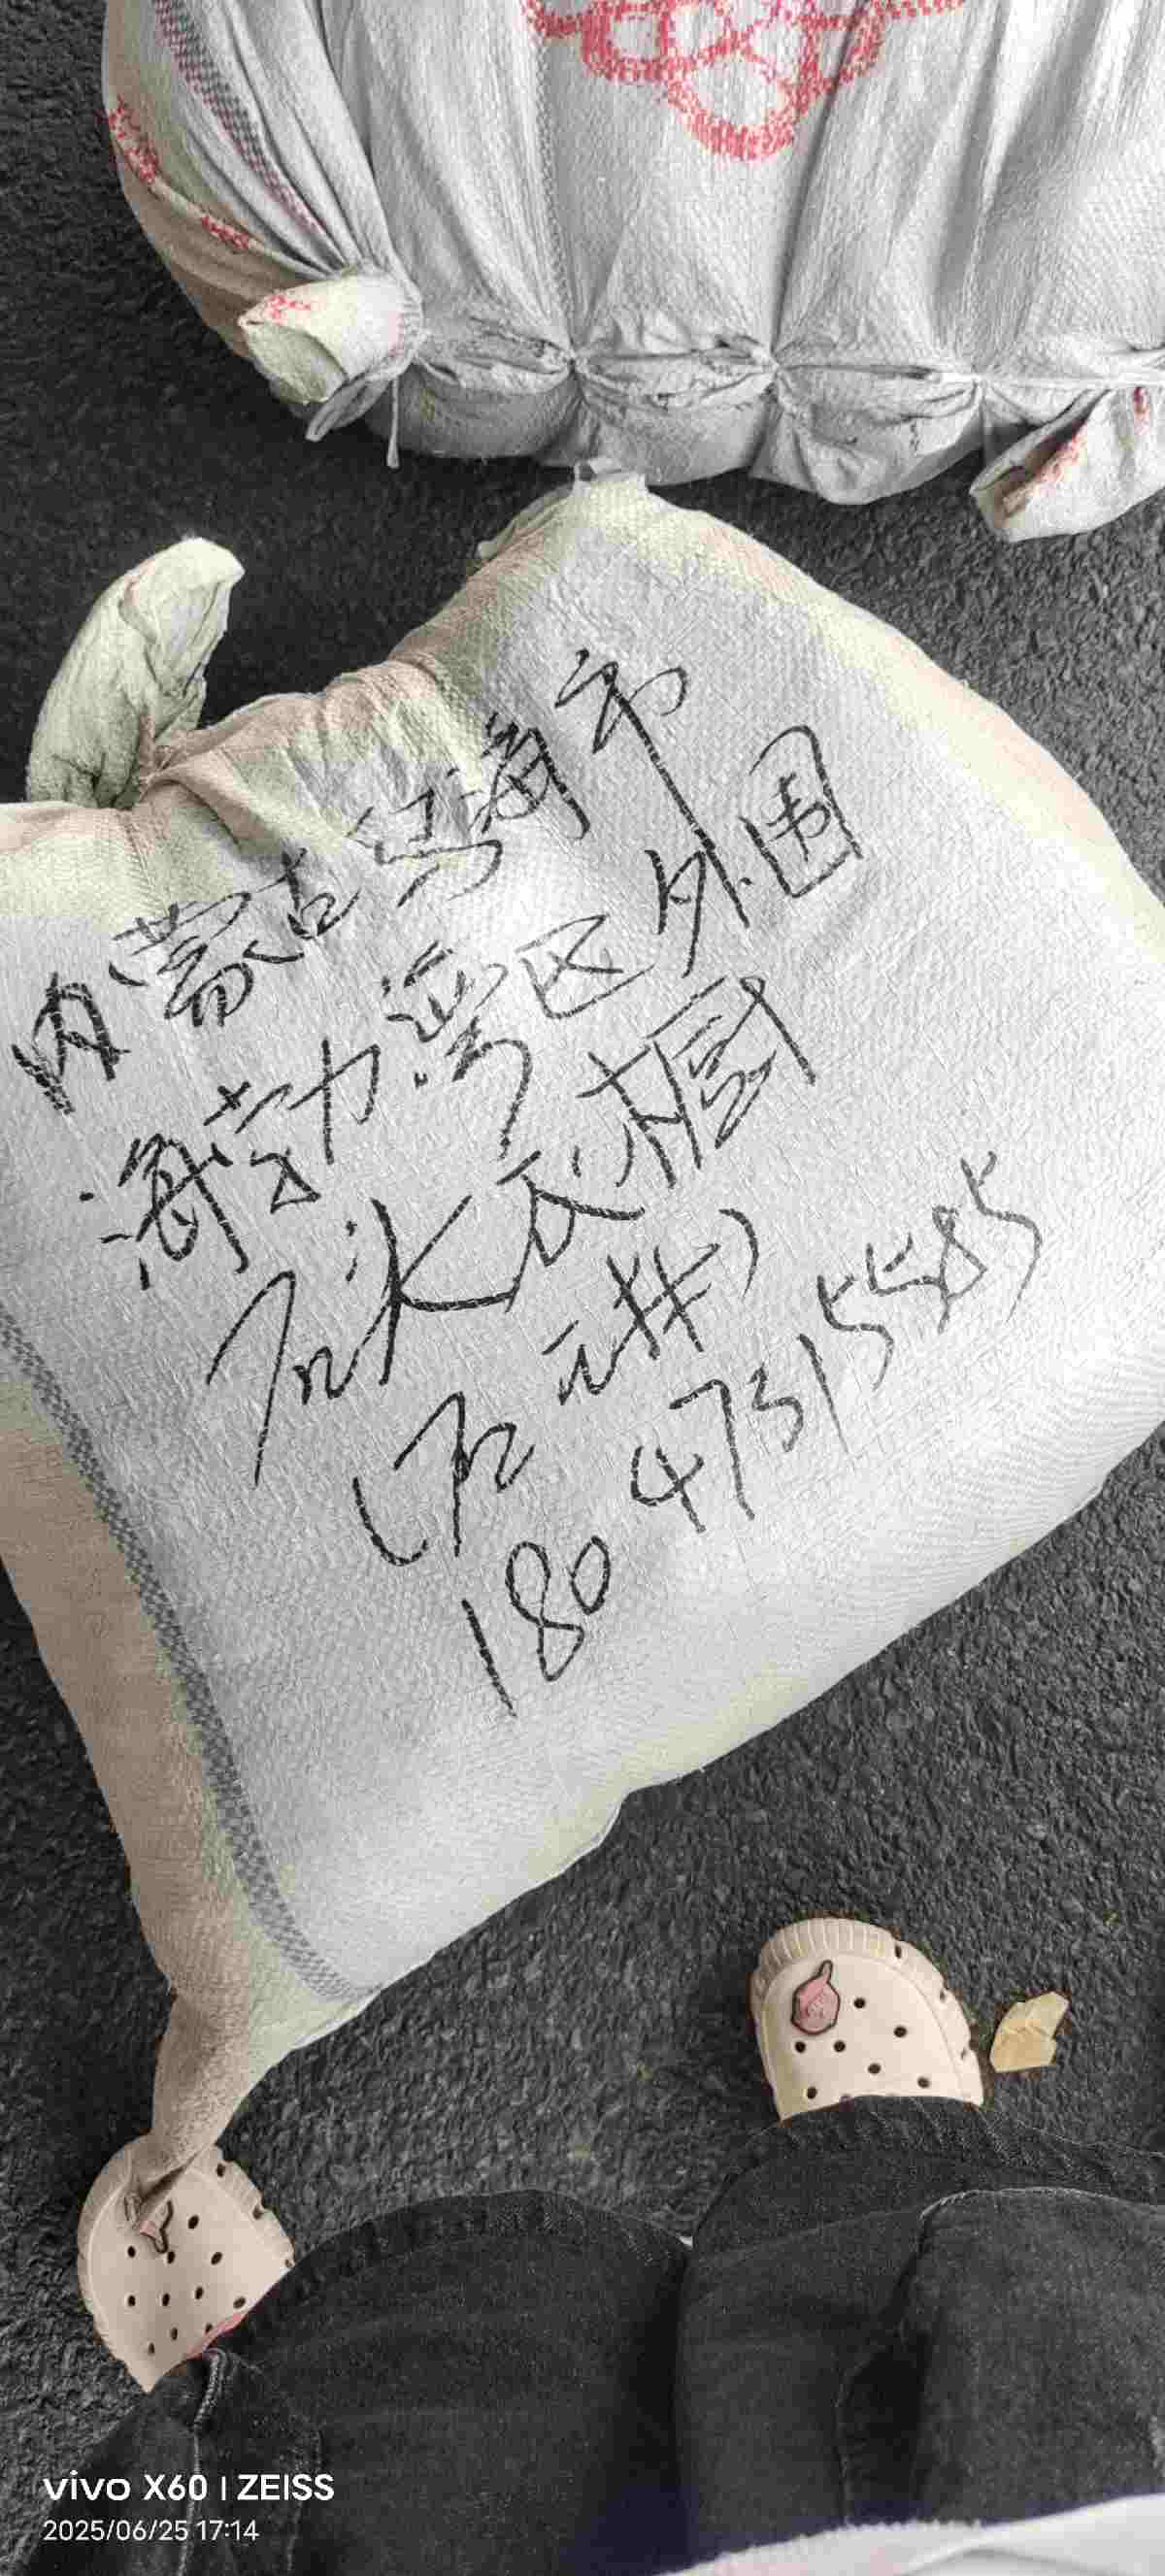 内蒙古乌海市
海勃湾区外围
石 橱
(石 )
180 47315585
vivo X60 | ZEISS
2025/06/25 17:14